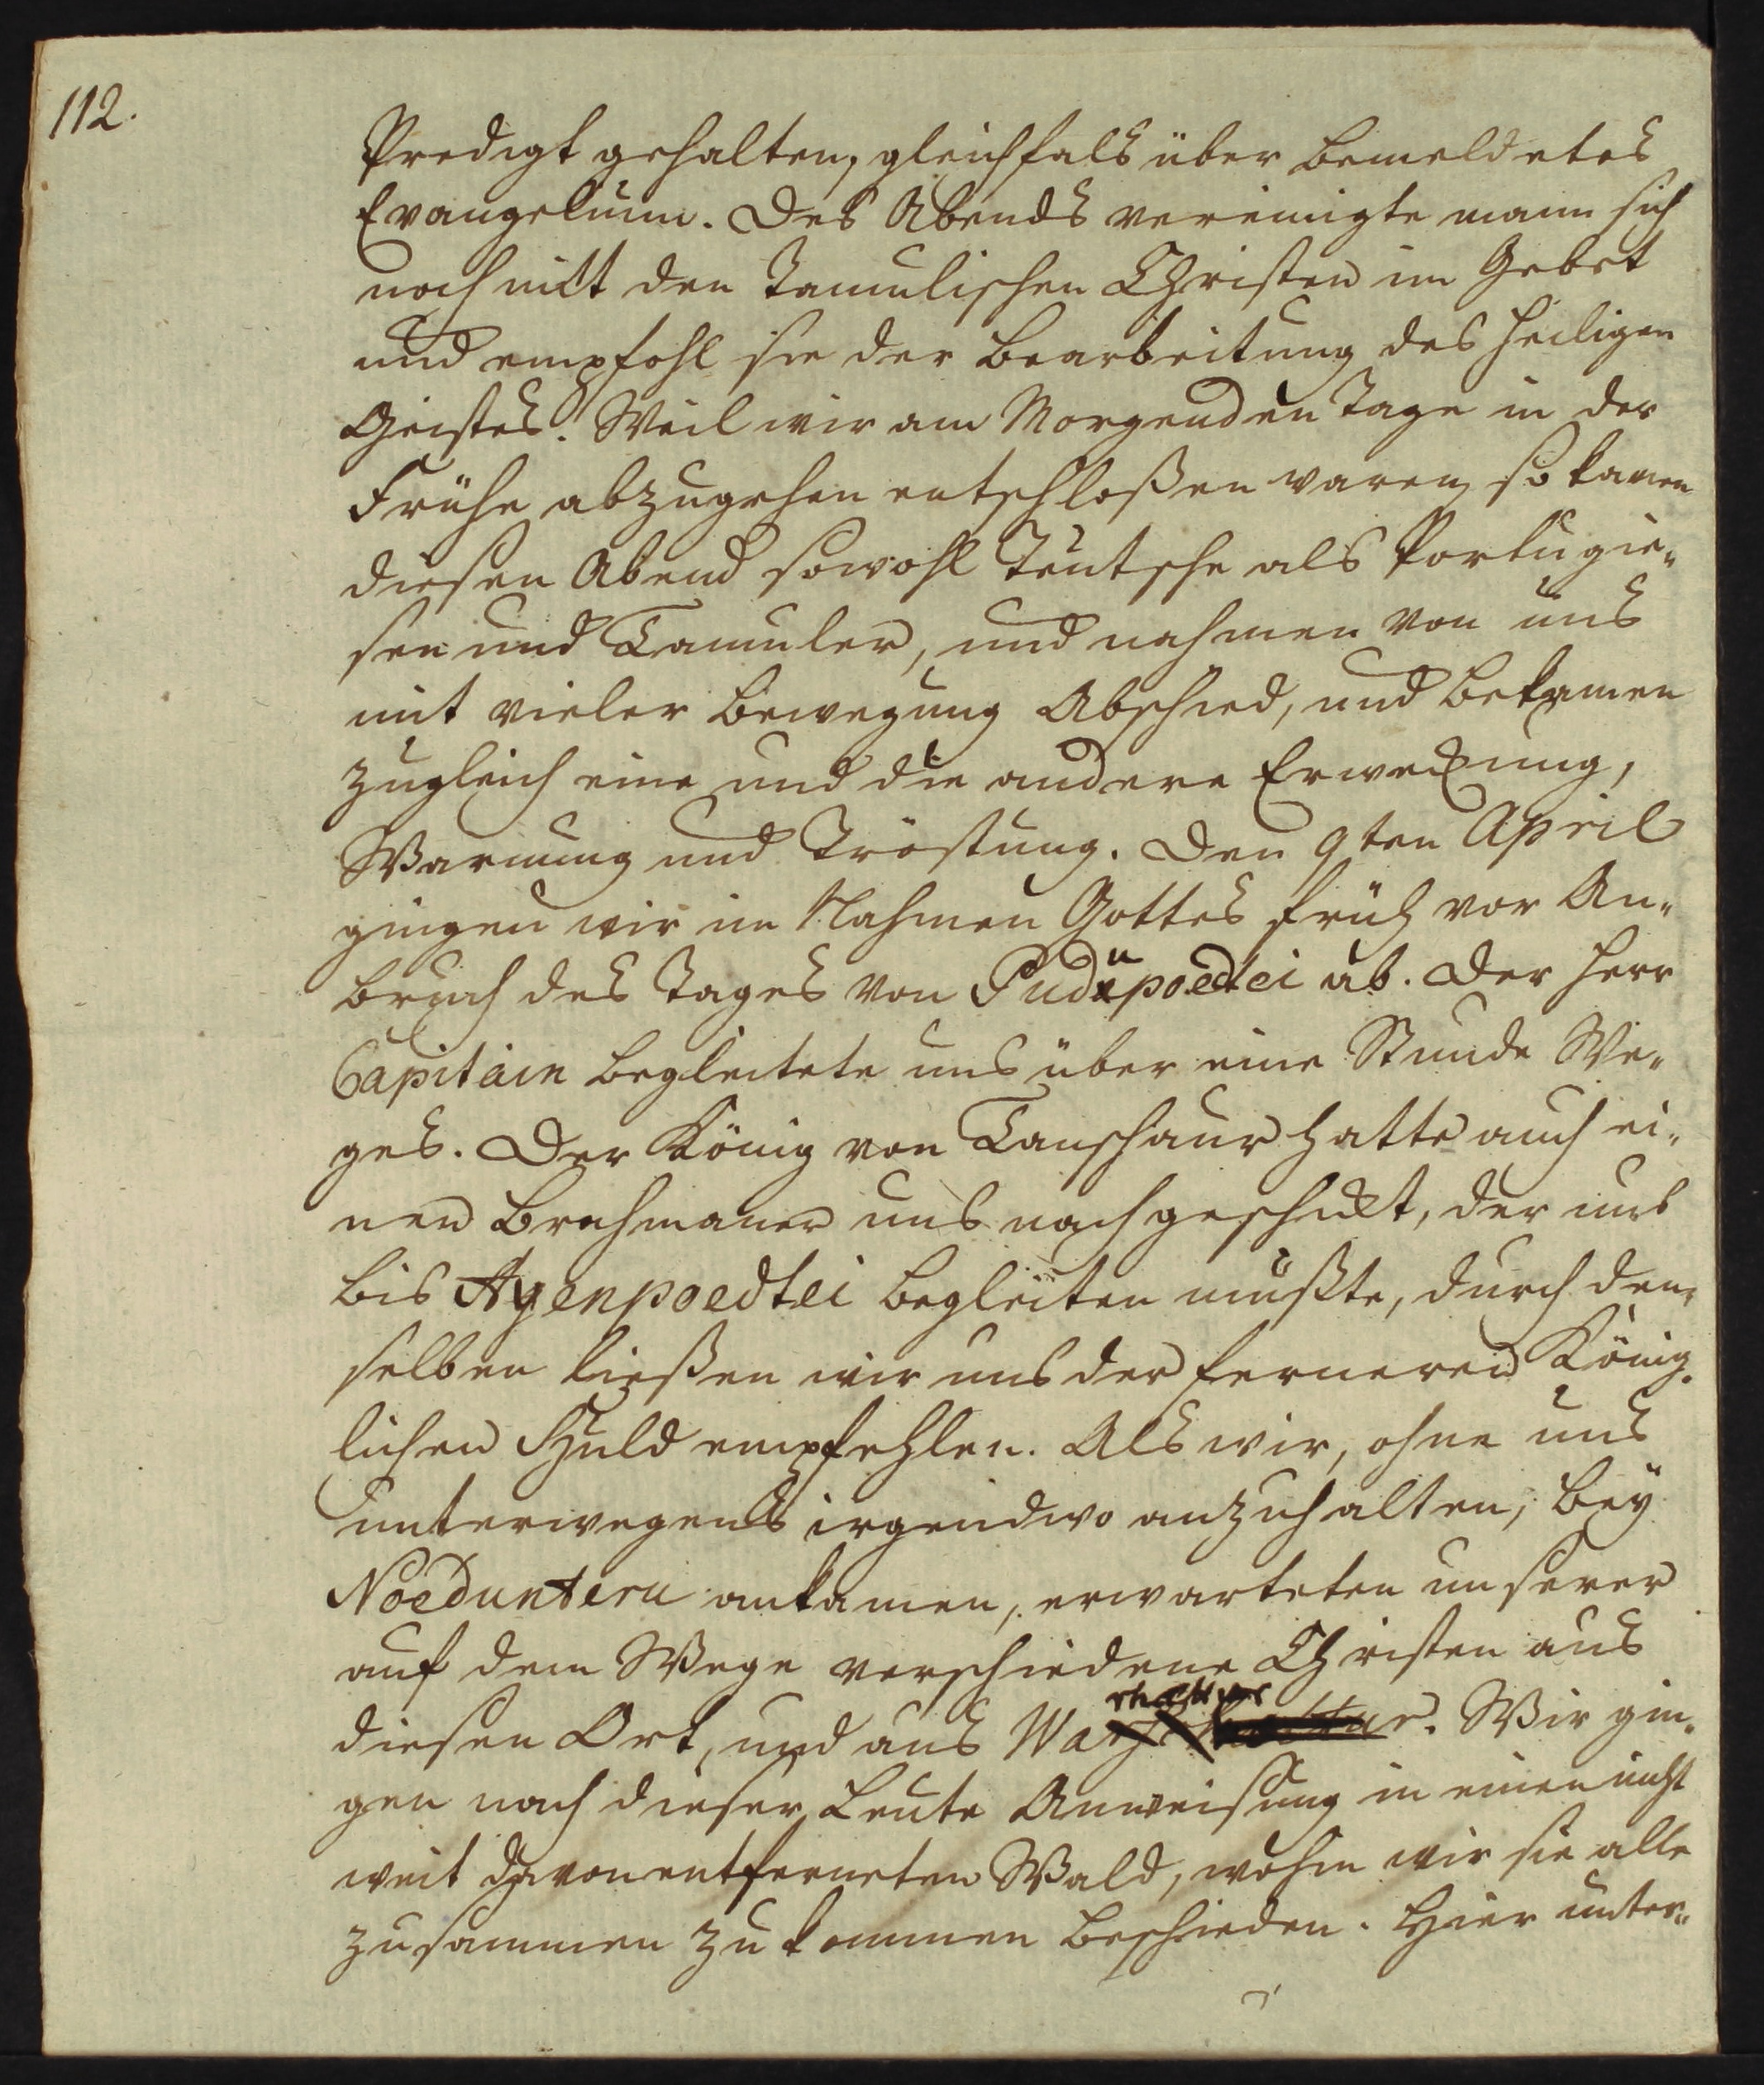 112.
Predigt gehalten, gleichfals über bemeldetes
Evangelium. Des Abends vereinigte mann sich
noch mit den Tamulischen Christen im Gebet
und empfohl sie der Bearbeitung des heiligen
Geistes. Weil wir am Morgenden Tage in der
Frühe abzugehen entschloßen waren, so kamen
diesen Abend sowohl Teutsche als Portugie„
sen und Tamuler, und nahmen von uns
mit vieler Bewegung Abschied, und bekamen
zugleich eine und die andere Erweckung,
Warnung und Tröstung. Den 9ten April
gingen wir im Nahmen Gottes früh vor An„
bruch des Tages von Pudupoedtei ab. Der Herr
Capitain begleitete uns über eine Stunde We„
ges. Der König von Tanschaur hatte auch ei„
nen Brahmaner uns nachgeschickt, der uns
bis Ayenpoedtei begleiten mußte, durch den„
selben ließen wir uns der ferneren König„
lichen Huld empfehlen. Als wir, ohne uns
unterwegens irgendwo anzuhalten, bey
Noeduntteru ankamen, erwarteten unserer
auf dem Wege verschiedene Christen aus
diesen Ort, und aus . Wir gin„
gen nach dieser Leute Anweisung in einen nicht
weit davon entferneten Wald, wohin wir sie alle
zusammen zu kommen beschieden. Hier unter„